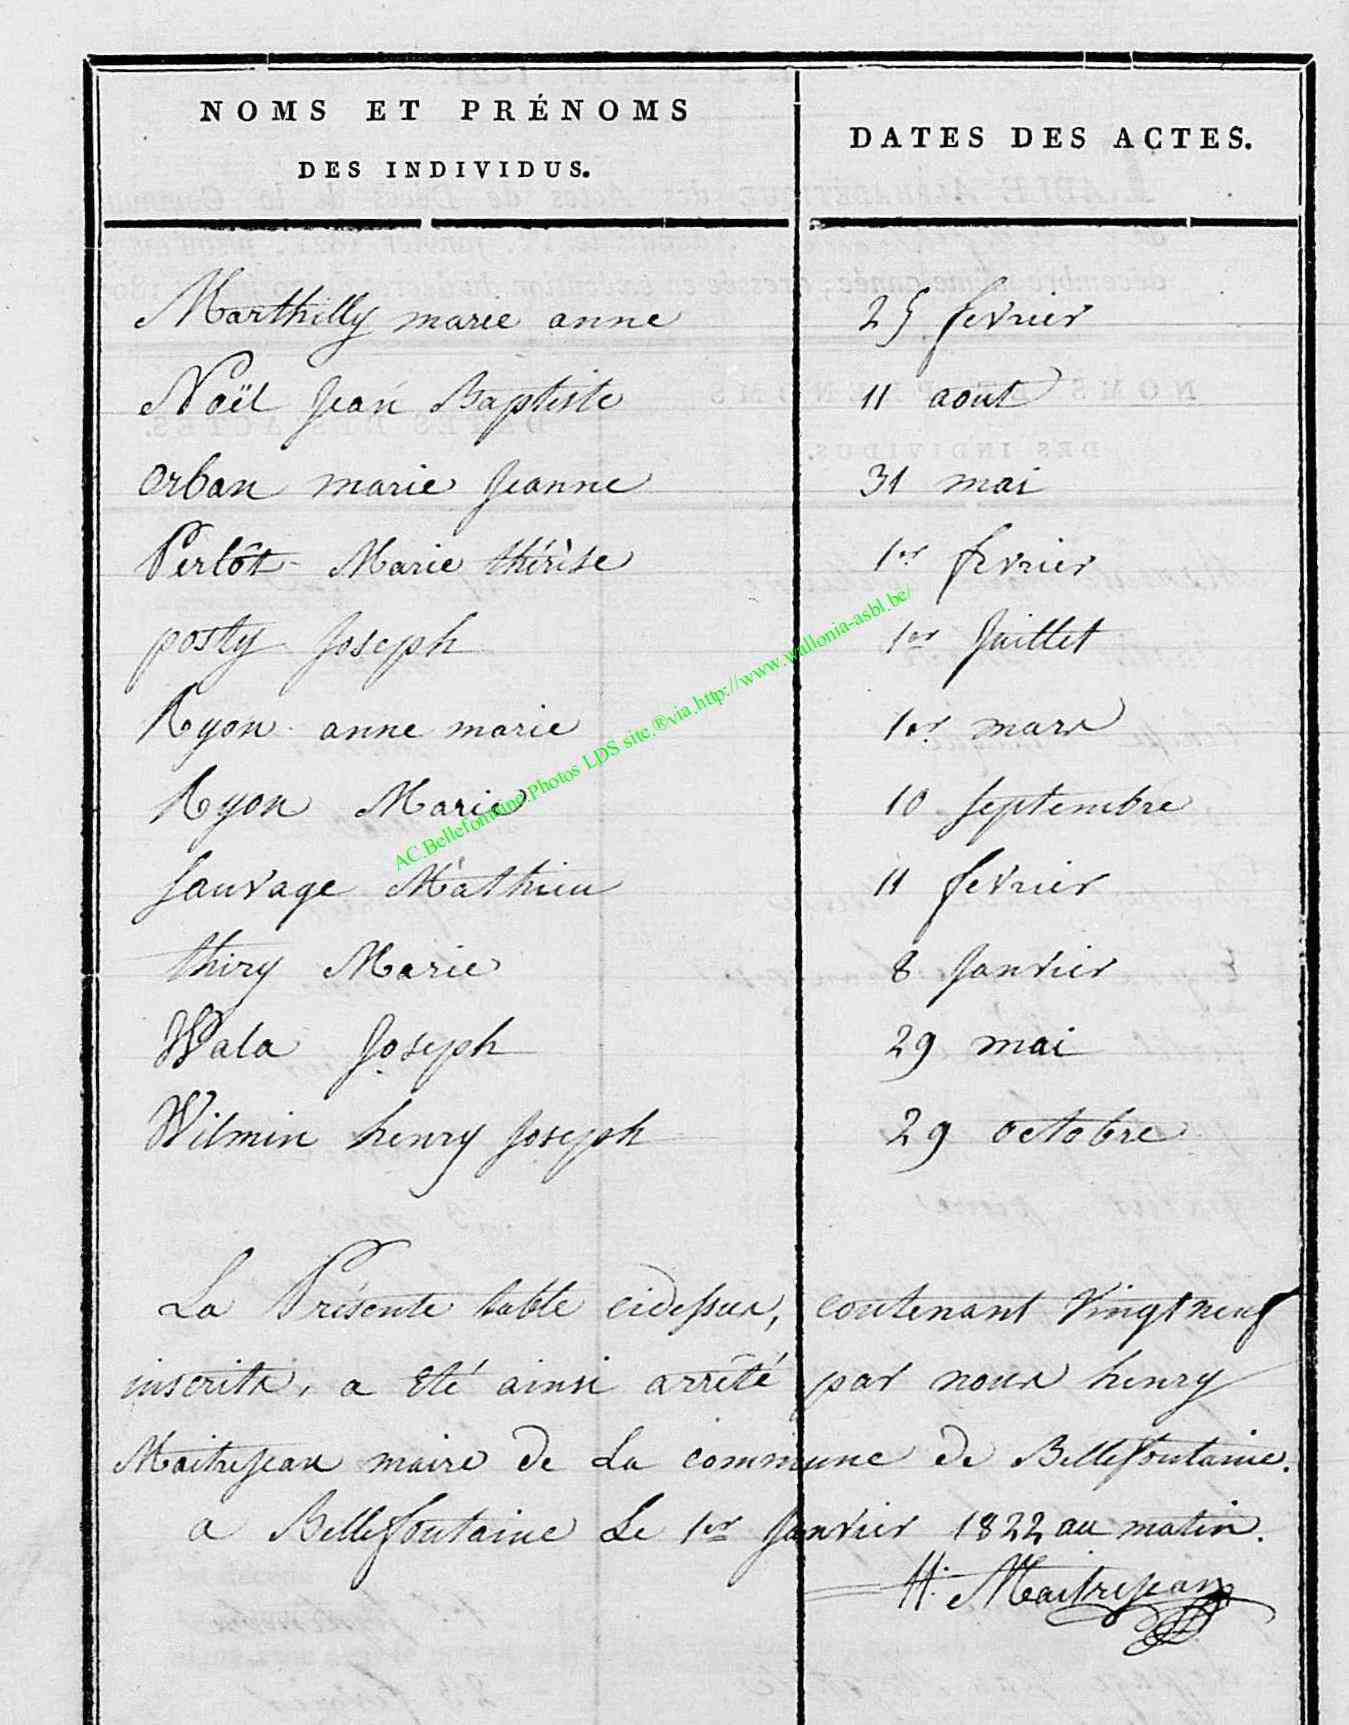 NOMS ET PRÉNOMS
DES INDIVIDUS.
DATES DES ACTES.
Marthilly marie anne 25 fevrier
Noël Jean Baptiste 11 aout
Orban marie Jeanne 31 mai
Perlôt Marie thérèse 1er fevrier
posty Joseph 1er Juillet
Ryon anne marie 1er mars
Ryon Marie 10 septembre
Sauvage Mathieu 11 fevrier
thiry Marie 8 Janvier
Wala Joseph 29 mai
Wilmin henry Joseph 29 octobre
La Présente table cidessus, contenant Vingt neuf
inscrits, a été ainsi arrêté par nous henry
Maitrejean maire de La commune de Bellefontaine.
a Bellefontaine Le 1er Janvier 1822 au matin.
H. Maitrejean
AC.Bellefontaine.Photos LDS site.®via.http://www.wallonia-asbl.be/